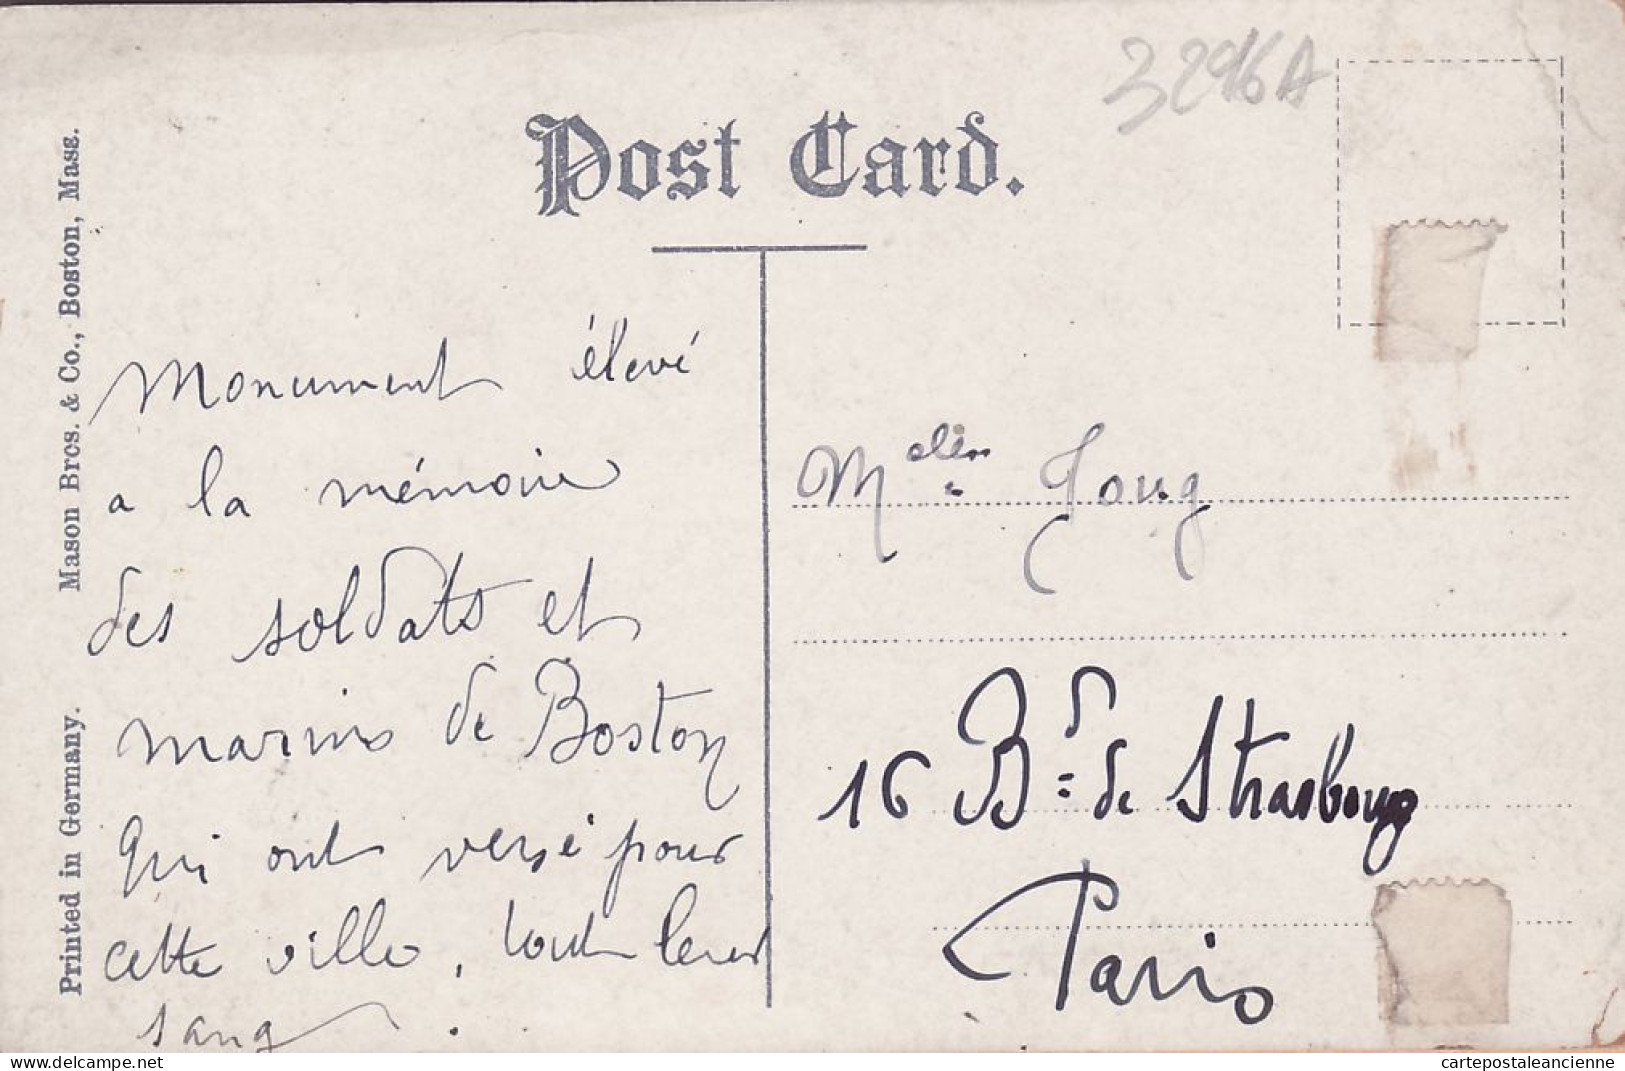 3296A
Post Card.
Mason Bros. & Co., Boston, Mass.
Printed in Germany.
Monument élevé
a la mémoire
des soldats et
marins de Boston
qui ont versé pour
cette ville, tout leur
sang.
16 Bd de Strasbourg
Paris
cartepostaleancienne